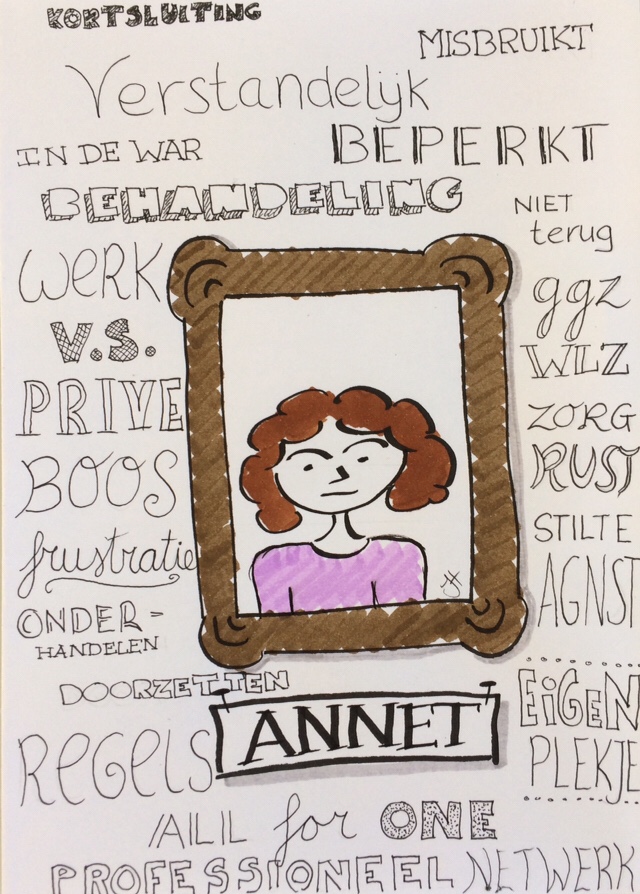 KORTSLUITING
MISBRUIKT
Verstandelijk
BEPERKT
IN DE WAR
BEHANDELING
NIET
terug
WERK
V.S.
PRIVE
BOOS
frustratie
ONDER-
HANDELEN
DOORZETTEN
REGELS
ggz
WLZ
ZORG
RUST
STILTE
AGNST
EiGEN
PLEKJE
ANNET
ALL for ONE
PROFESSIONEEL NETWERK